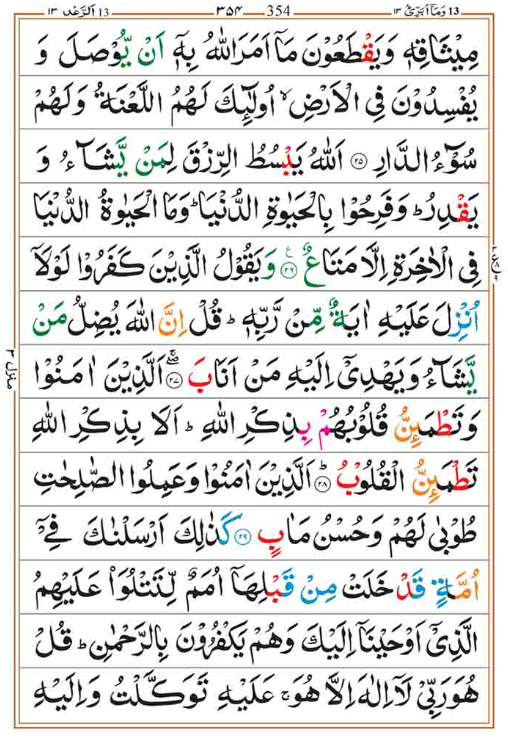 اَلرَّعْد 13 ١٣
٣٥٤ 354
وَمَآ اُبَرِّئُ 13 ١٣
مِيْثَاقِهٖ وَيَقْطَعُوْنَ مَاۤ اَمَرَاللّٰهُ بِهٖۤ اَنْ يُّوْصَلَ وَ
يُفْسِدُوْنَ فِى الْاَرْضِۙ اُولٰۤئِكَ لَهُمُ اللَّعْنَةُ وَلَهُمْ
سُوْٓءُ الدَّارِ ۟٢٥ اَللّٰهُ يَبْسُطُ الرِّزْقَ لِمَنْ يَّشَآءُ وَ
يَقْدِرُؕ وَفَرِحُوْا بِالْحَيٰوةِ الدُّنْيَاؕ وَمَا الْحَيٰوةُ الدُّنْيَا
فِى الْاٰخِرَةِ اِلَّا مَتَاعٌ ۟٢٦ وَيَقُوْلُ الَّذِيْنَ كَفَرُوْا لَوْلَاۤ
اُنْزِلَ عَلَيْهِ اٰيَةٌ مِّنْ رَّبِّهٖؕ قُلْ اِنَّ اللّٰهَ يُضِلُّ مَنْ
يَّشَآءُ وَيَهْدِىْۤ اِلَيْهِ مَنْ اَنَابَ ۟٢٧ اَلَّذِيْنَ اٰمَنُوْا
وَتَطْمَئِنُّ قُلُوْبُهُمْ بِذِكْرِ اللّٰهِؕ اَلَا بِذِكْرِ اللّٰهِ
تَطْمَئِنُّ الْقُلُوْبُؕ ۟٢٨ اَلَّذِيْنَ اٰمَنُوْا وَعَمِلُوا الصّٰلِحٰتِ
طُوْبٰى لَهُمْ وَحُسْنُ مَاٰبٍ ۟٢٩ كَذٰلِكَ اَرْسَلْنٰكَ فِىْۤ
اُمَّةٍ قَدْ خَلَتْ مِنْ قَبْلِهَاۤ اُمَمٌ لِّتَتْلُوَا۟ عَلَيْهِمُ
الَّذِىْۤ اَوْحَيْنَاۤ اِلَيْكَ وَهُمْ يَكْفُرُوْنَ بِالرَّحْمٰنِؕ قُلْ
هُوَ رَبِّىْ لَاۤ اِلٰهَ اِلَّا هُوَۚ عَلَيْهِ تَوَكَّلْتُ وَاِلَيْهِ
منزل ٣